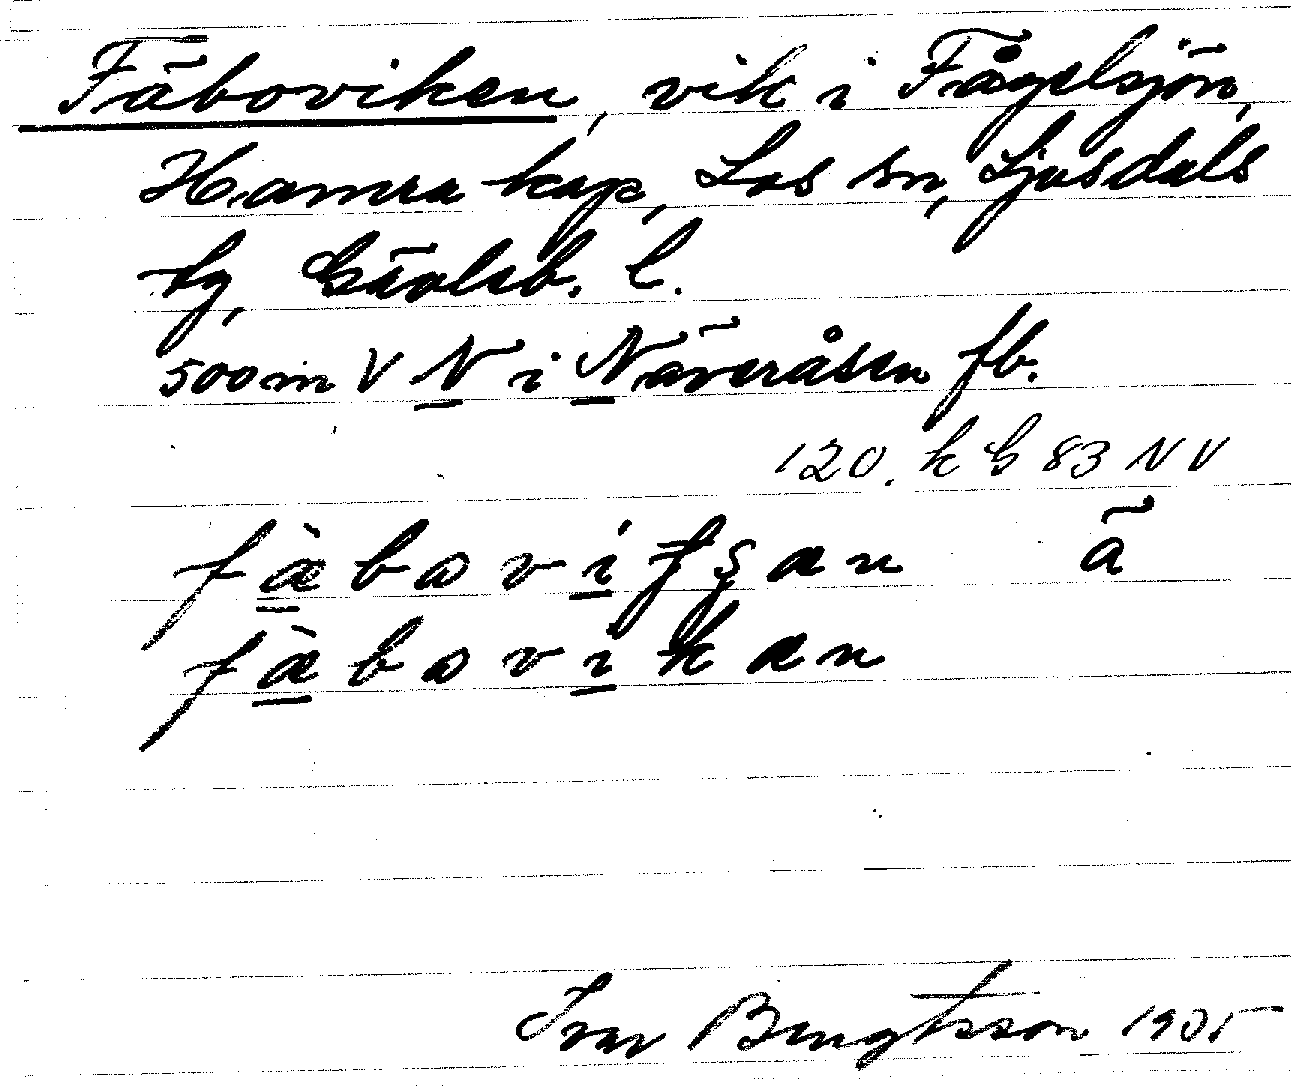 Fäboviken, vik i Fågelsjön,
Hamra kap, Los sn, Ljusdals
tg, Gävleb. l.
500 m V N i Näveråsen fb.
120. k G 83 NV
ä
fæ̀bovikan
Ivar Bengtsson 1905